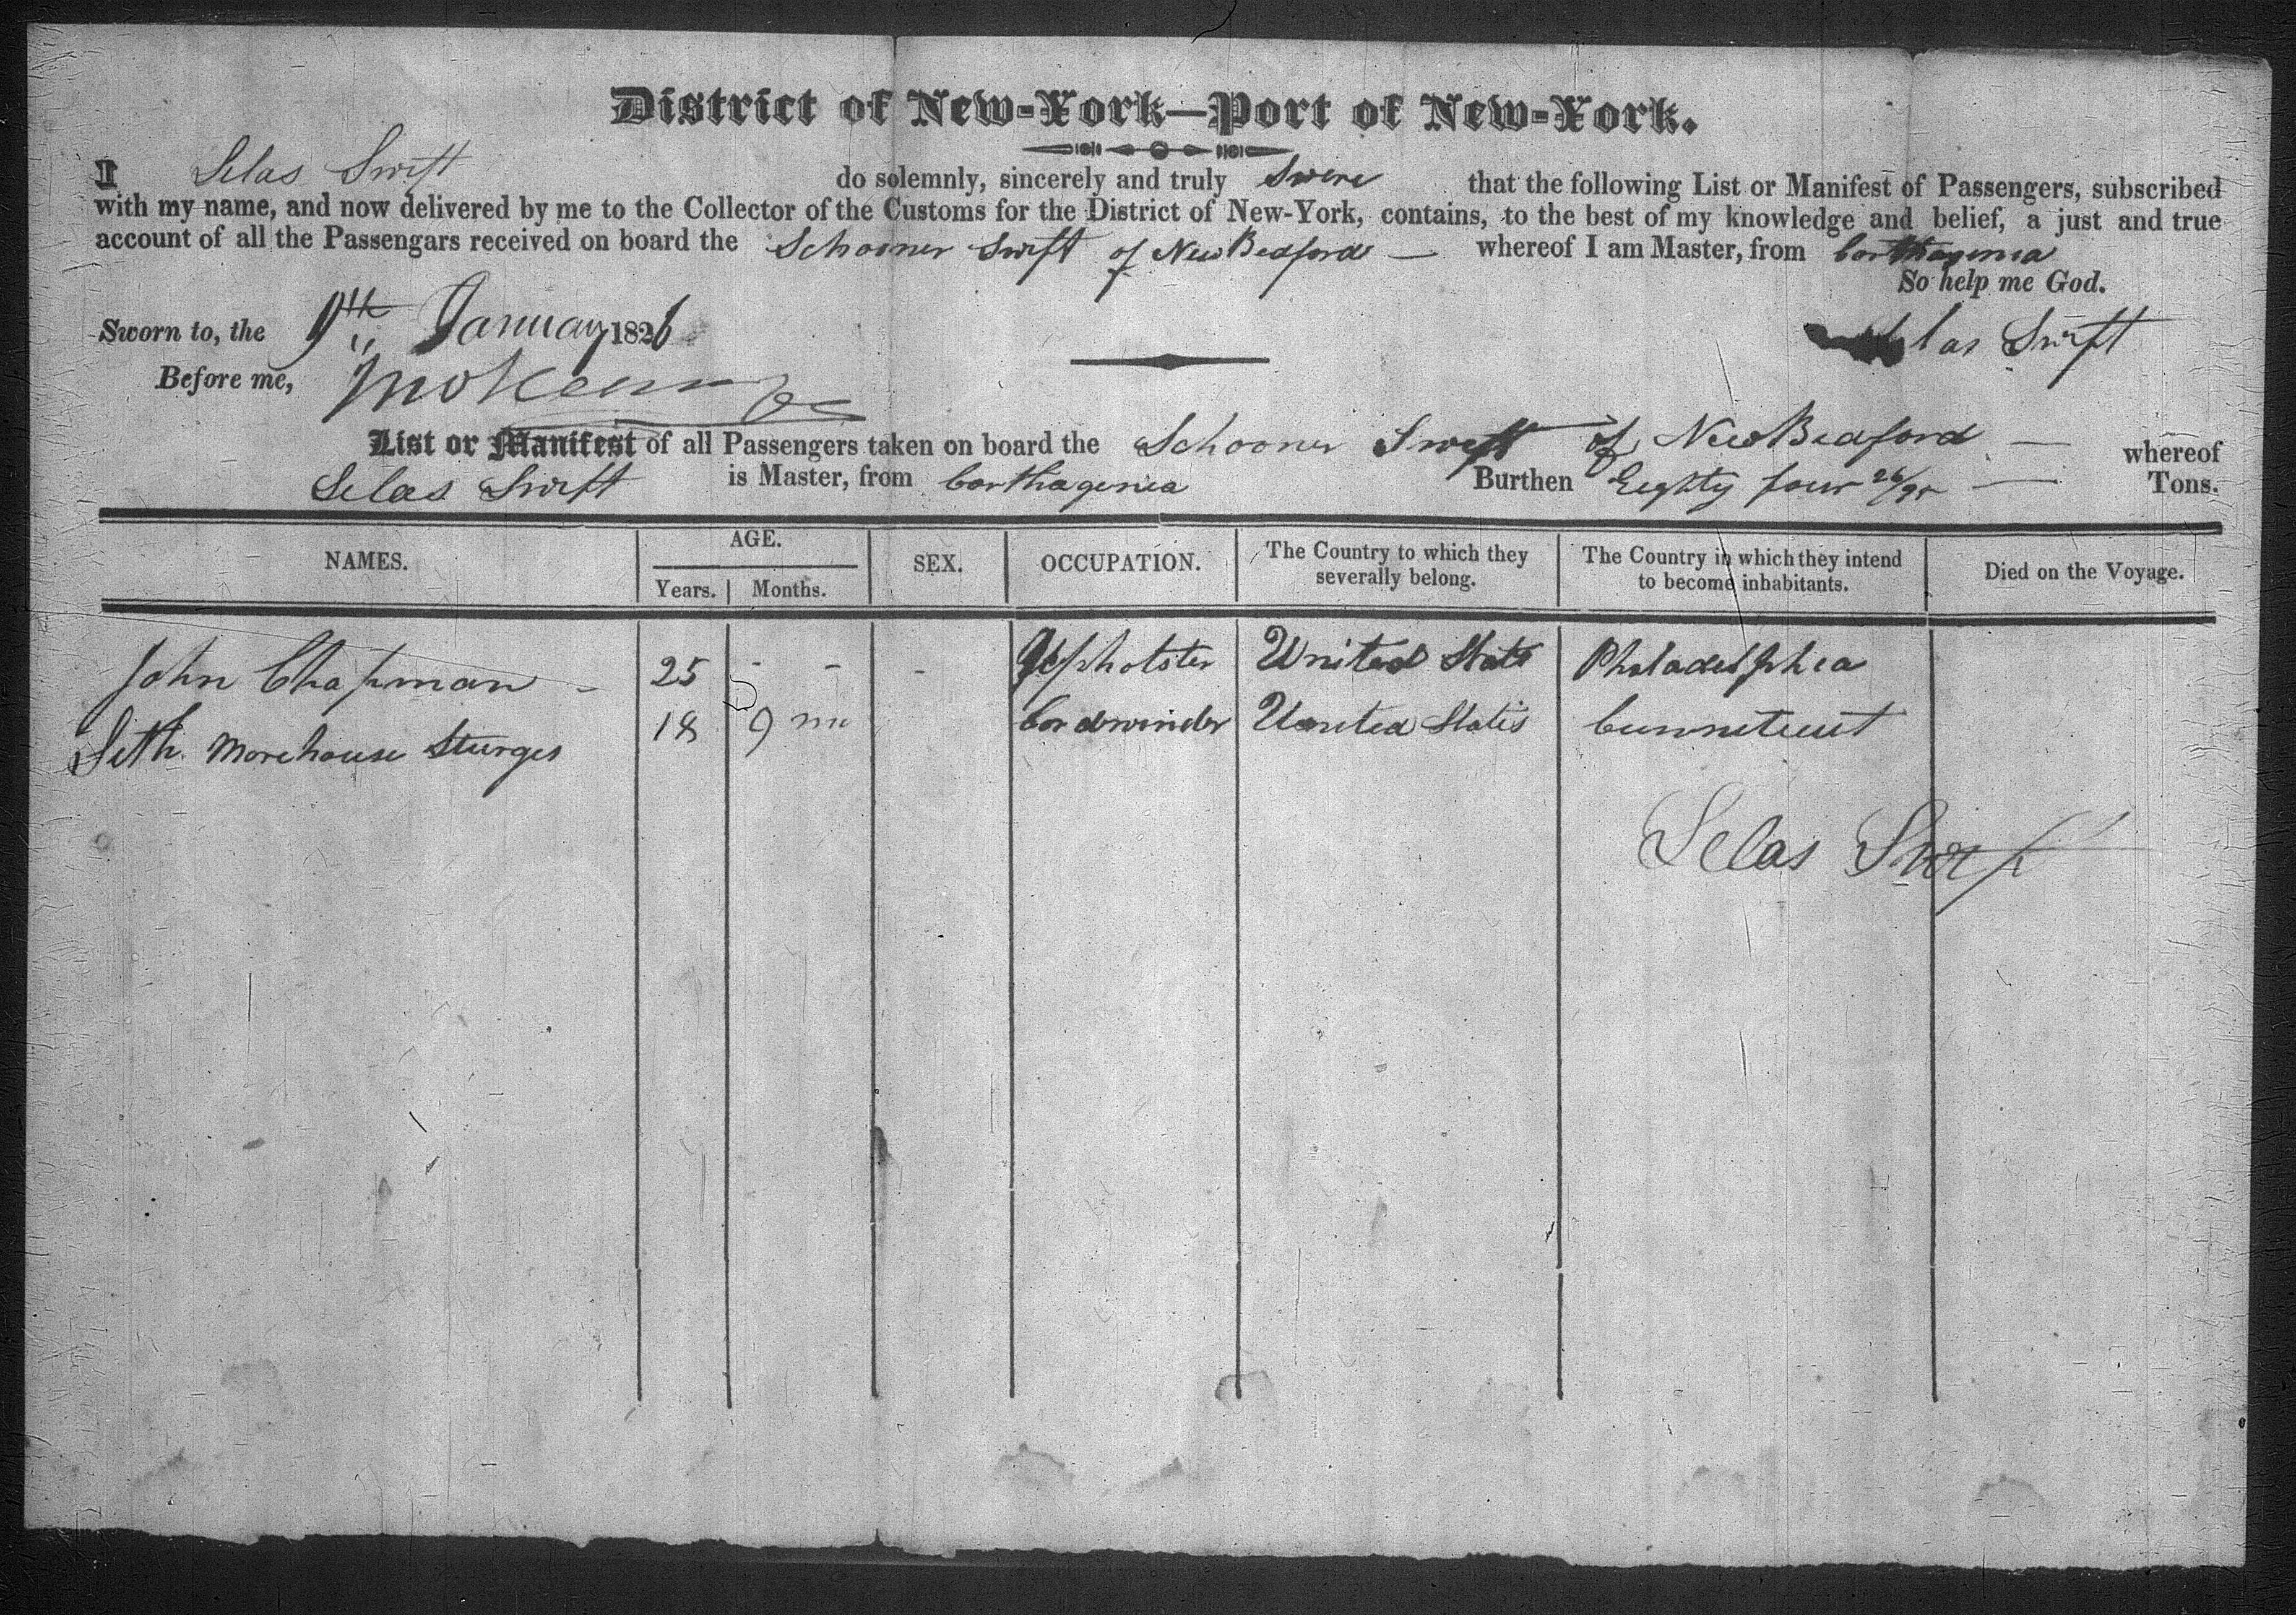 District of New-York—Port of New-York.
I Silas Swift do solemnly, sincerely and truly Swere that the following List or Manifest of Passengers, subscribed
with my name, and now delivered by me to the Collector of the Customs for the District of New-York, contains, to the best of my knowledge and belief, a just and true
account of all the Passengars received on board the Schooner Swift of New Bedford — whereof I am Master, from Carthagenia
So help me God.
Sworn to, the 9th January 1826
Silas Swift
Before me,
List or Manifest of all Passengers taken on board the Schooner Swift of New Bedford — whereof
Silas Swift is Master, from Carthagenia Burthen Eighty four 26/95 — Tons.
NAMES. AGE. SEX. OCCUPATION. The Country to which they severally belong. The Country in which they intend to become inhabitants. Died on the Voyage.
Years. Months.
John Chapman - 25 - - - Upholster United Stats Philadelphia
Seth Morehouse Sturges 18 9 mo Cordwinder United States Cunneticut
Silas Swift